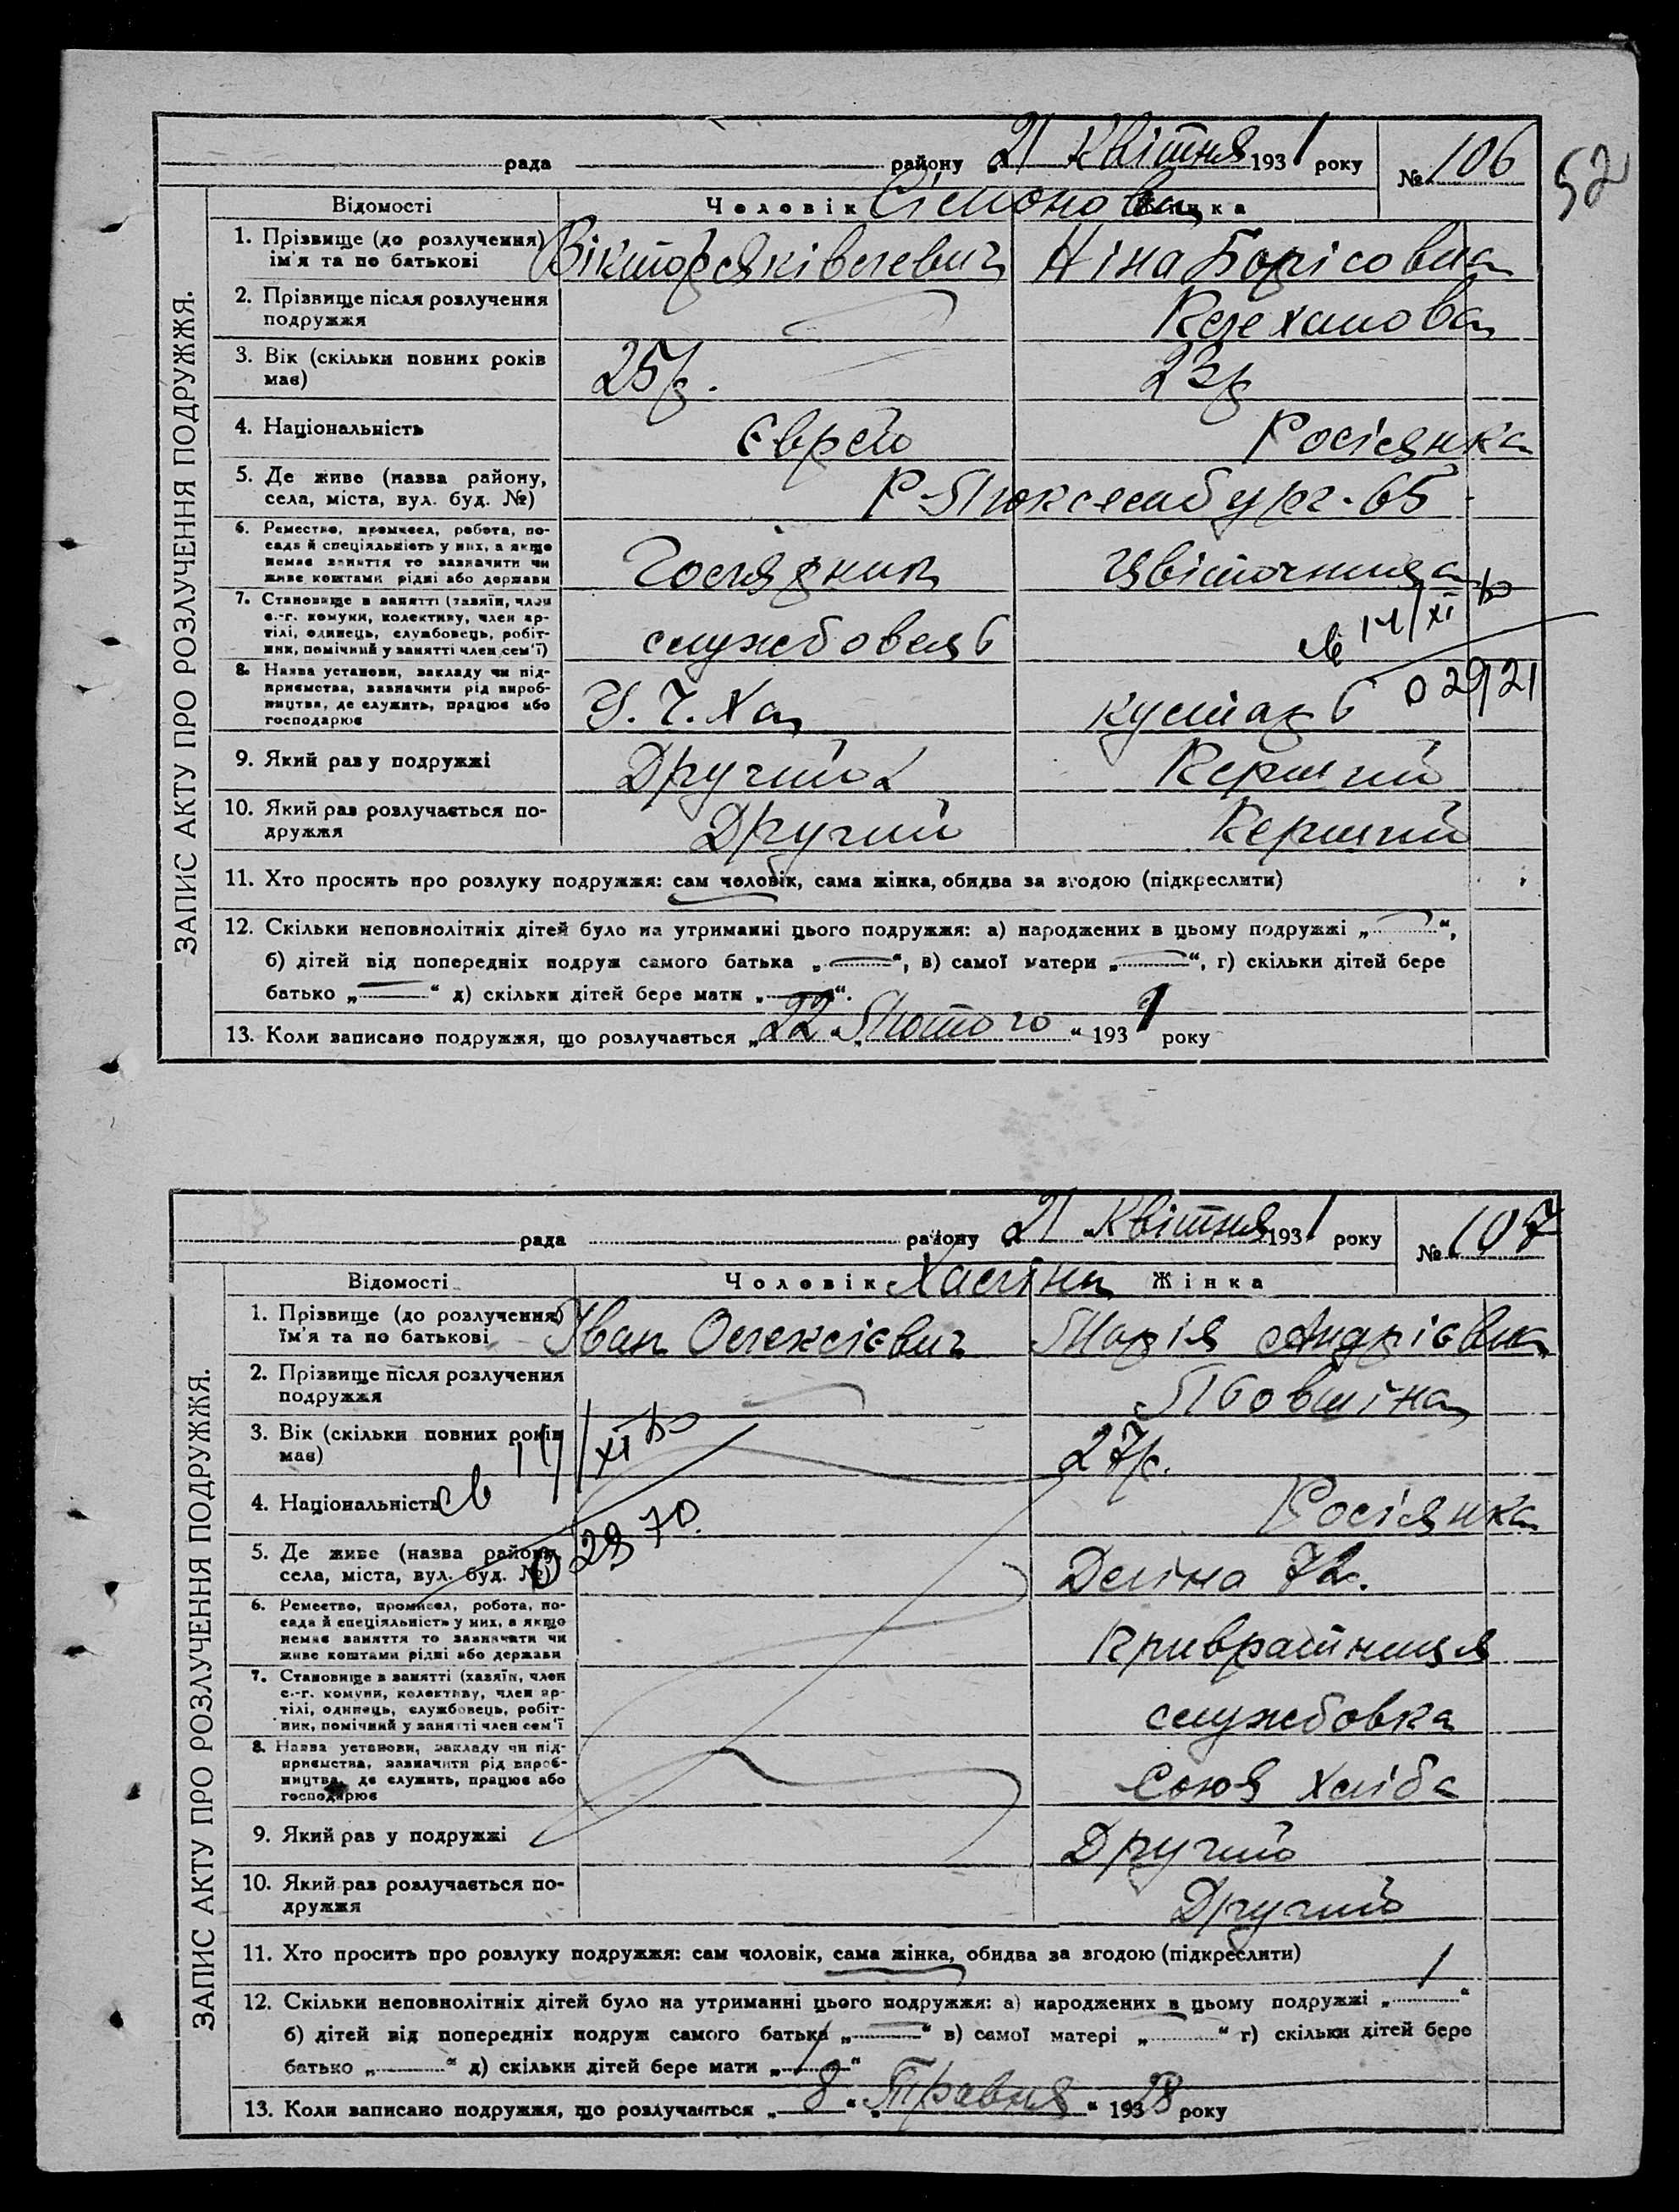 52
рада району 21 Квітня 1931 року № 106
ЗАПИС АКТУ ПРО РОЗЛУЧЕННЯ ПОДРУЖЖЯ.
Відомості Чоловік Жінка
Сімонови
1. Прізвище (до розлучення)
ім'я та по батькові
Віктор Ніна Борісовна
2. Прізвище після розлучення
подружжя
3. Вік (скільки повних років
має)
25 р. 23 р
4. Національність Єврей Росіянка
5. Де живе (назва району,
села, міста, вул. буд. №)
Р-Люксембург-65
6. Ремество, промисел, робота, по-
сада й спеціяльність у них, а якщо
немає заняття то зазначити чи
живе коштами рідні або держави
Цвіточниця
7. Становище в занятті (хазяїн, член
с.-г. комуни, колективу, член ар-
тілі, одинець, службовець, робіт-
ник, помічний у занятті член сем'ї)
службовець
14/XI
8. Назва установи, закладу чи під-
приємства, зазначити рід вироб-
ництва, де служить, працює або
господарює
кустарь
02921
9. Який раз у подружжі Другий Перший
10. Який раз розлучається по-
дружжя
Другий Перший
11. Хто просить про розлуку подружжя: сам чоловік, сама жінка, обидва за згодою (підкреслити)
12. Скільки неповнолітніх дітей було на утриманні цього подружжя: а) народжених в цьому подружжі „ “,
б) дітей від попередніх подруж самого батька „ “, в) самої матери „ “, г) скільки дітей бере
батько „ “ д) скільки дітей бере мати „ “.
13. Коли записано подружжя, що розлучається „22“ „Лютого“ 1931 року
рада району 21 Квітня 1931 року № 107
ЗАПИС АКТУ ПРО РОЗЛУЧЕННЯ ПОДРУЖЖЯ.
Відомості Чоловік Жінка
1. Прізвище (до розлучення)
ім'я та по батькові
Іван Олексієвич Марія Андрієвна
2. Прізвище після розлучення
подружжя
Львовшіна
3. Вік (скільки повних років
має)
27 р.
4. Національність Росіянка
5. Де живе (назва району,
села, міста, вул. буд. №)
6. Ремество, промисел, робота, по-
сада й спеціяльність у них, а якщо
немає заняття то зазначити чи
живе коштами рідні або держави
Привратниця
7. Становище в занятті (хазяїн, член
с.-г. комуни, колективу, член ар-
тілі, одинець, службовець, робіт-
ник, помічний у занятті член сем'ї
службовка
8. Назва установи, закладу чи під-
приємства, зазначити рід вироб-
ництва, де служить, працює або
господарює
Союз Хліба
9. Який раз у подружжі Другий
10. Який раз розлучається по-
дружжя
Другий
11. Хто просить про розлуку подружжя: сам чоловік, сама жінка, обидва за згодою (підкреслити)
12. Скільки неповнолітніх дітей було на утриманні цього подружжя: а) народжених в цьому подружжі „1“
б) дітей від попередніх подруж самого батька „ “ в) самої матері „ “ г) скільки дітей бере
батько „ “ д) скільки дітей бере мати „1“
13. Коли записано подружжя, що розлучається „8“ „Травня“ 1928 року